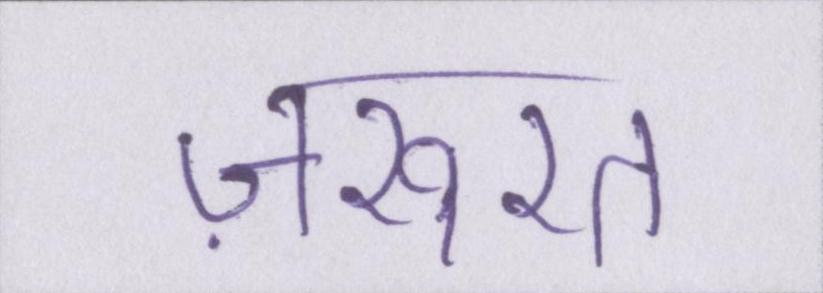 ज़रूरत